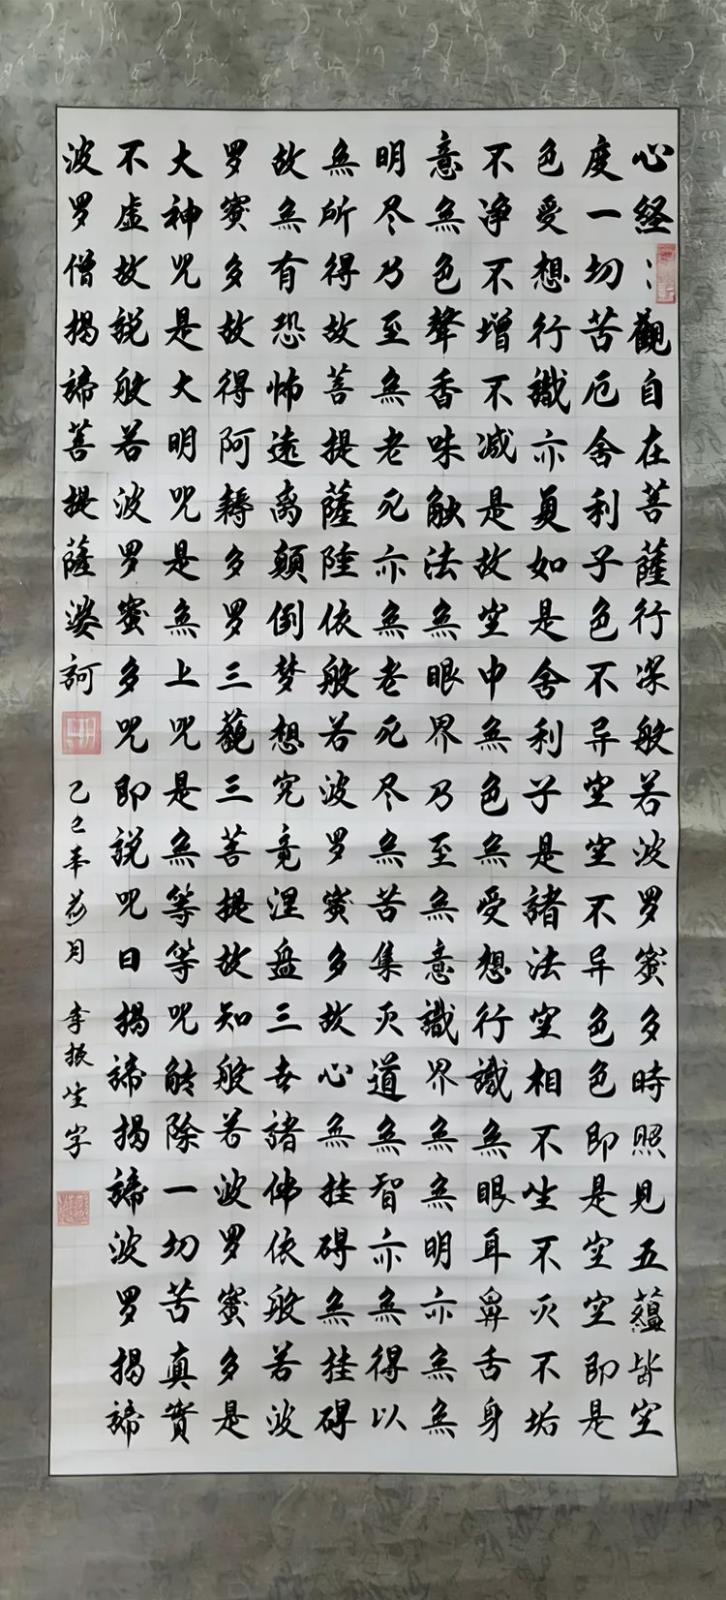 心経：觀自在菩薩行深般若波罗蜜多時照見五蘊皆空
度一切苦厄舍利子色不异空空不异色色即是空空即是
色受想行識亦复如是舍利子是諸法空相不生不灭不垢
不净不增不减是故空中無色無受想行識無眼耳鼻舌身
意無色聲香味触法無眼界乃至無意識界無無明亦無無
明尽乃至無老死亦無老死尽無苦集灭道無智亦無得以
無所得故菩提薩陲依般若波罗蜜多故心無挂碍無挂碍
故無有恐怖遠离顛倒梦想究竟涅盘三世諸佛依般若波
罗蜜多故得阿耨多罗三藐三菩提故知般若波罗蜜多是
大神咒是大明咒是無上咒是無等等咒能除一切苦真實
不虚故説般若波罗蜜多咒即説咒曰揭諦揭諦波罗揭諦
波罗僧揭諦菩提薩婆訶
乙巳年荷月 李振生字